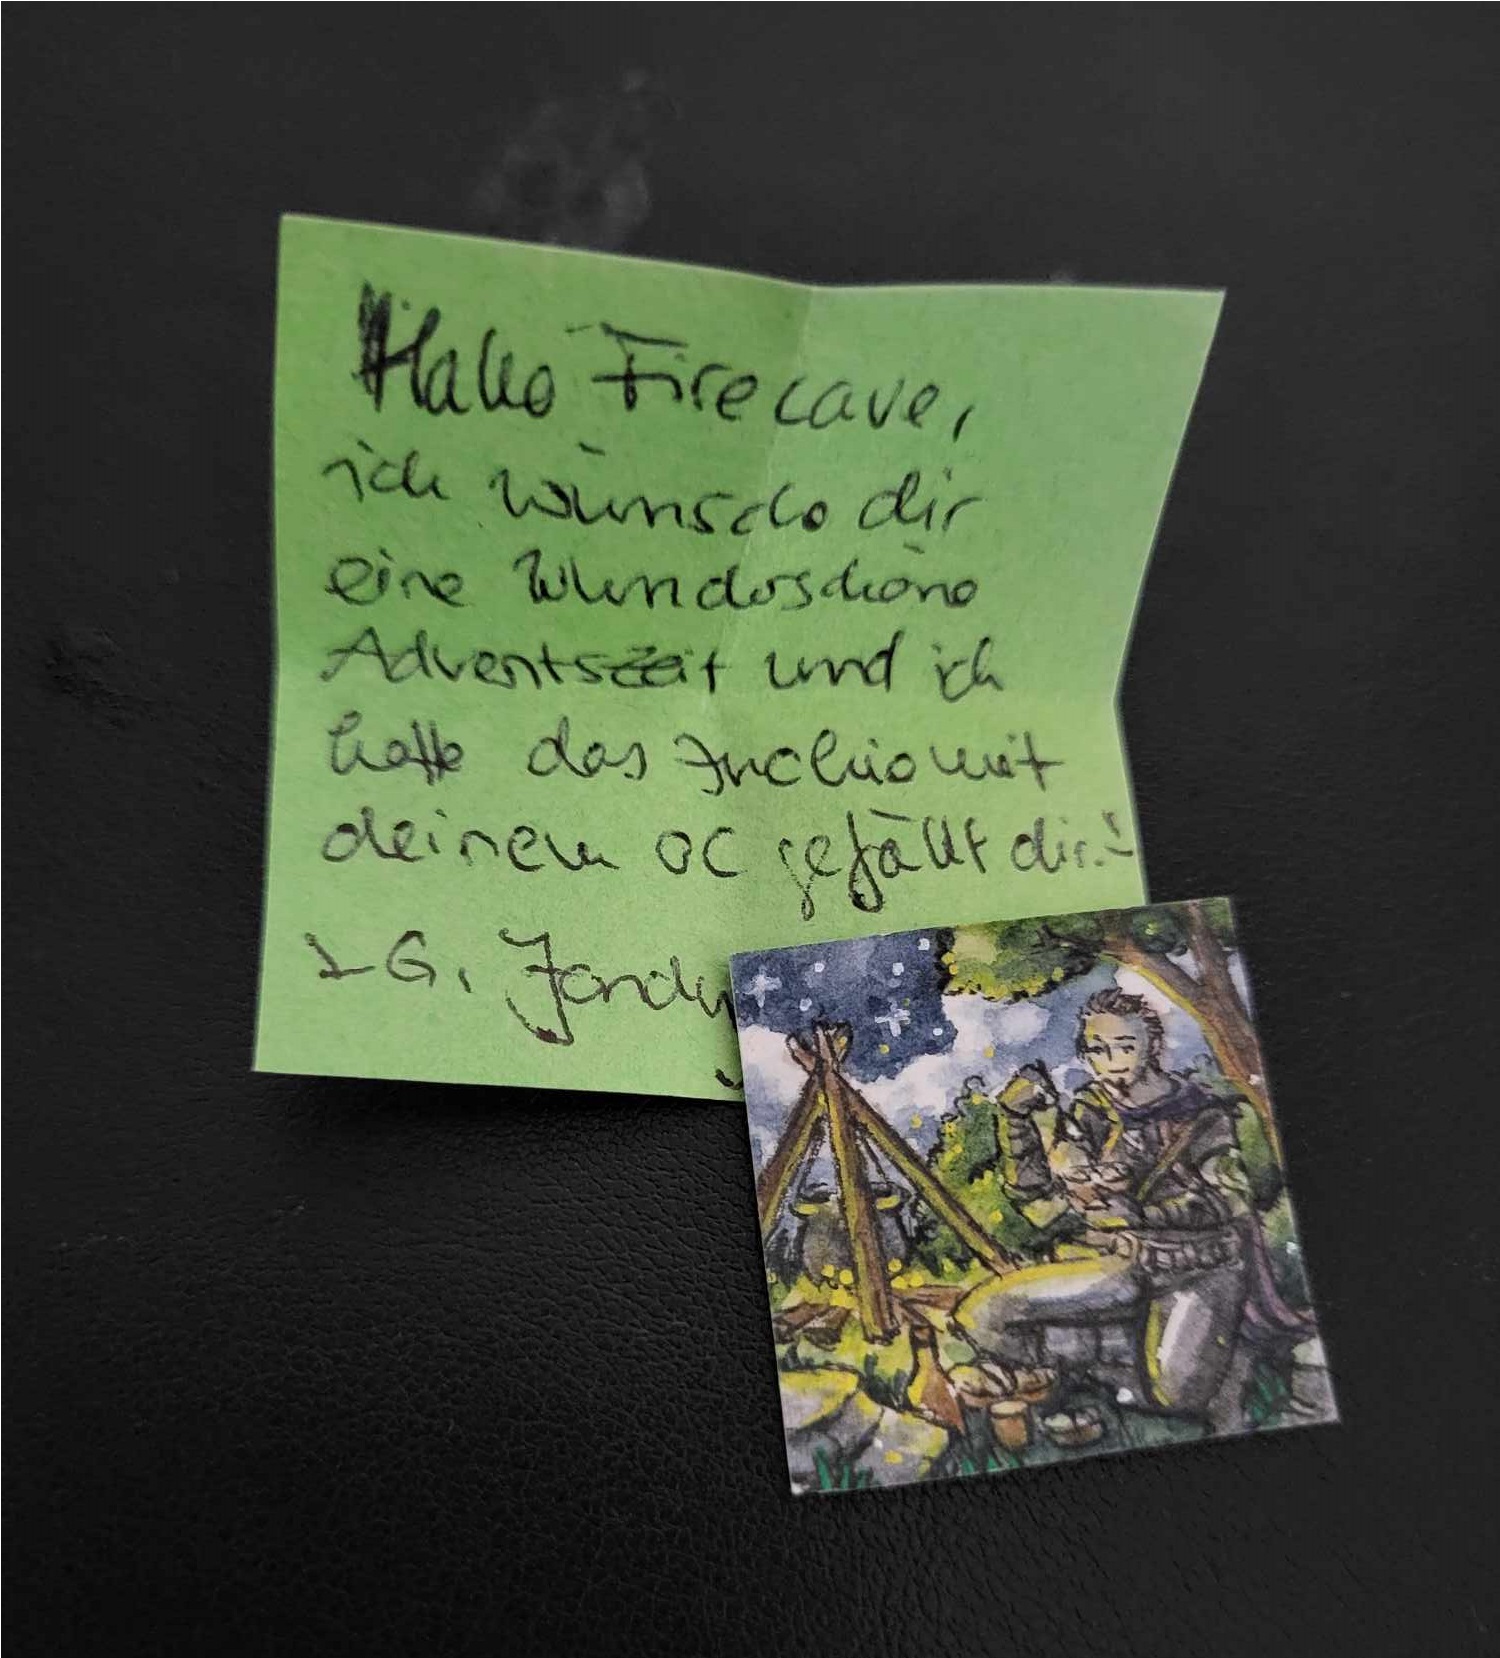 Hallo Firecave,
ich wünsche dir
eine Wunderschöne
Adventszeit und ich
hoffe das Inchie mit
deinem OC gefällt dir!
LG,